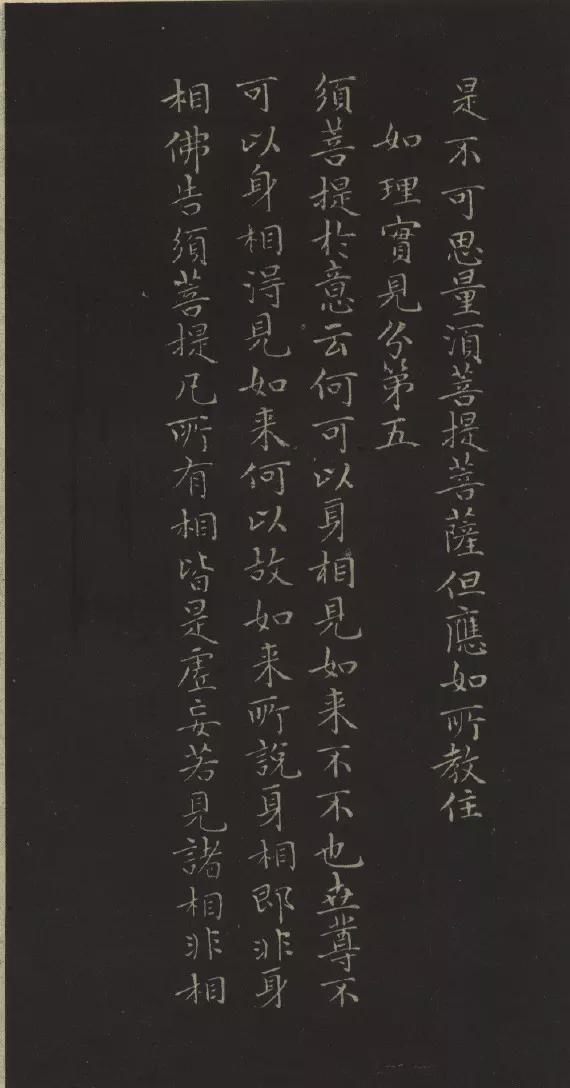 是不可思量須菩提菩薩但應如所教住
如理實見分第五
須菩提於意云何可以身相見如来不不也世尊不
可以身相得見如来何以故如来所說身相即非身
相佛告須菩提凡所有相皆是虛妄若見諸相非相